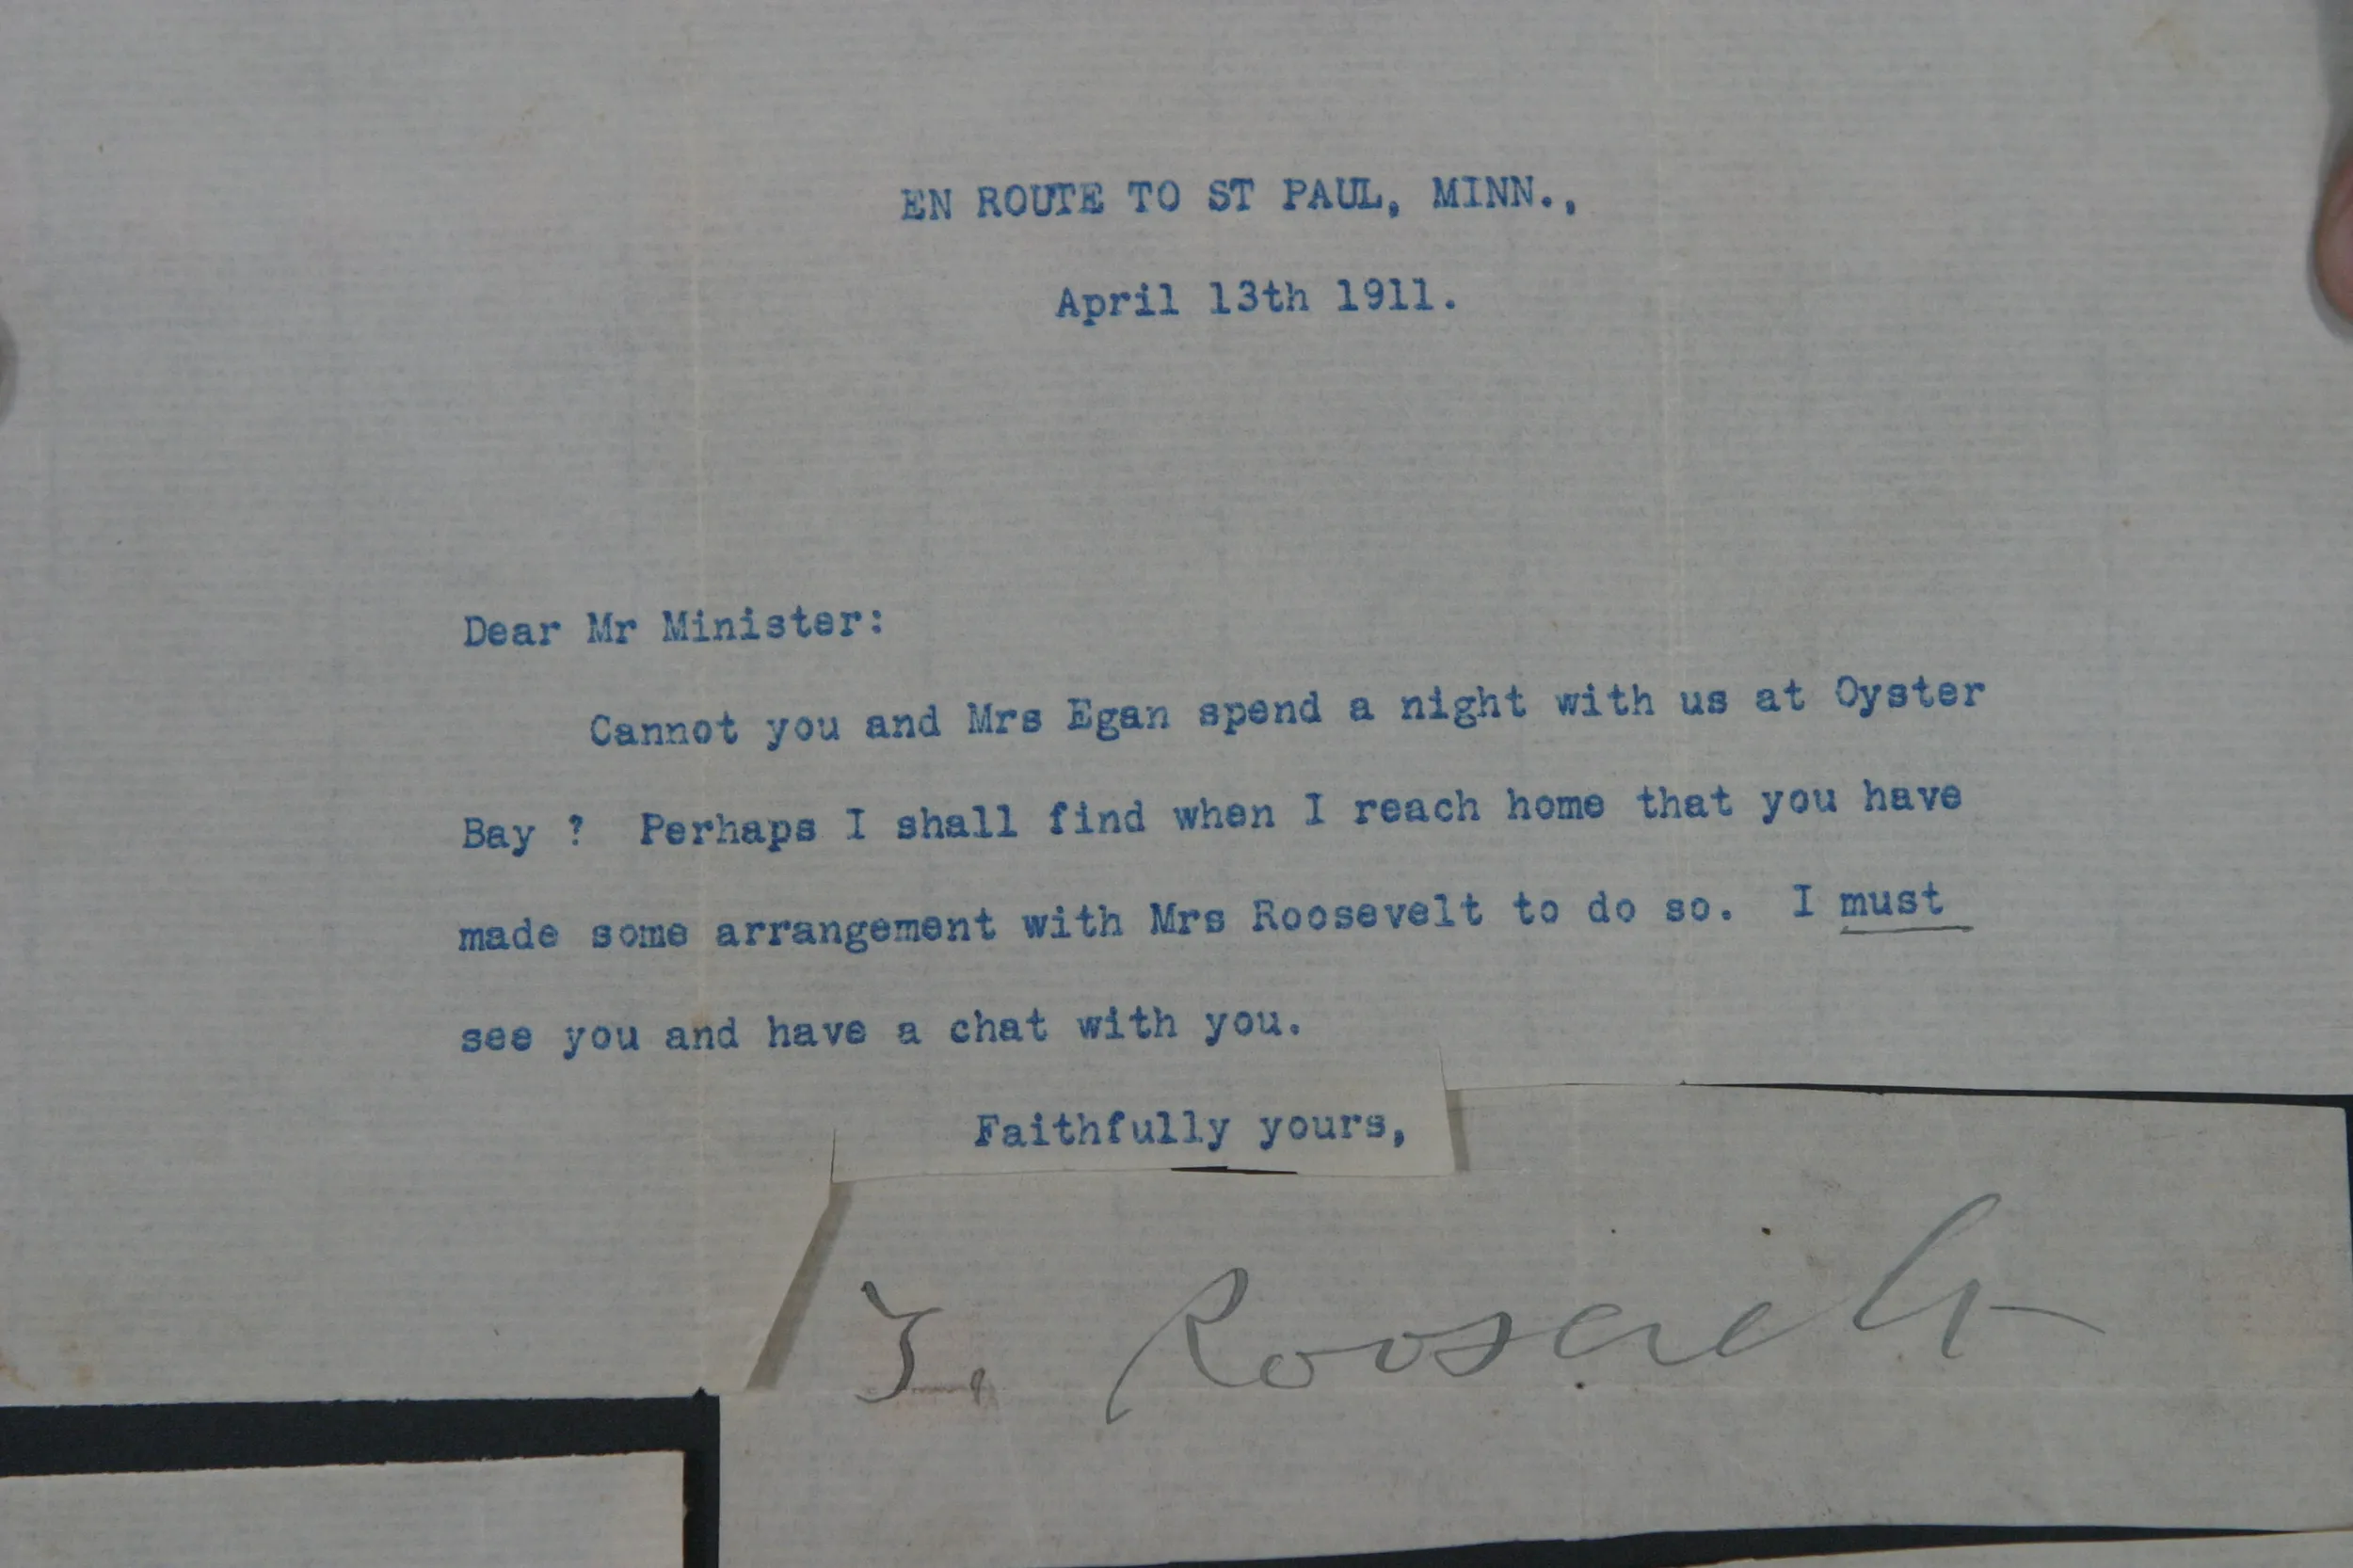 EN ROUTE TO ST PAUL, MINN.,
April 13th 1911.
Dear Mr Minister:
Cannot you and Mrs Egan spend a night with us at Oyster
Bay ? Perhaps I shall find when I reach home that you have
made some arrangement with Mrs Roosevelt to do so. I must
see you and have a chat with you.
Faithfully yours,
T. Roosevelt